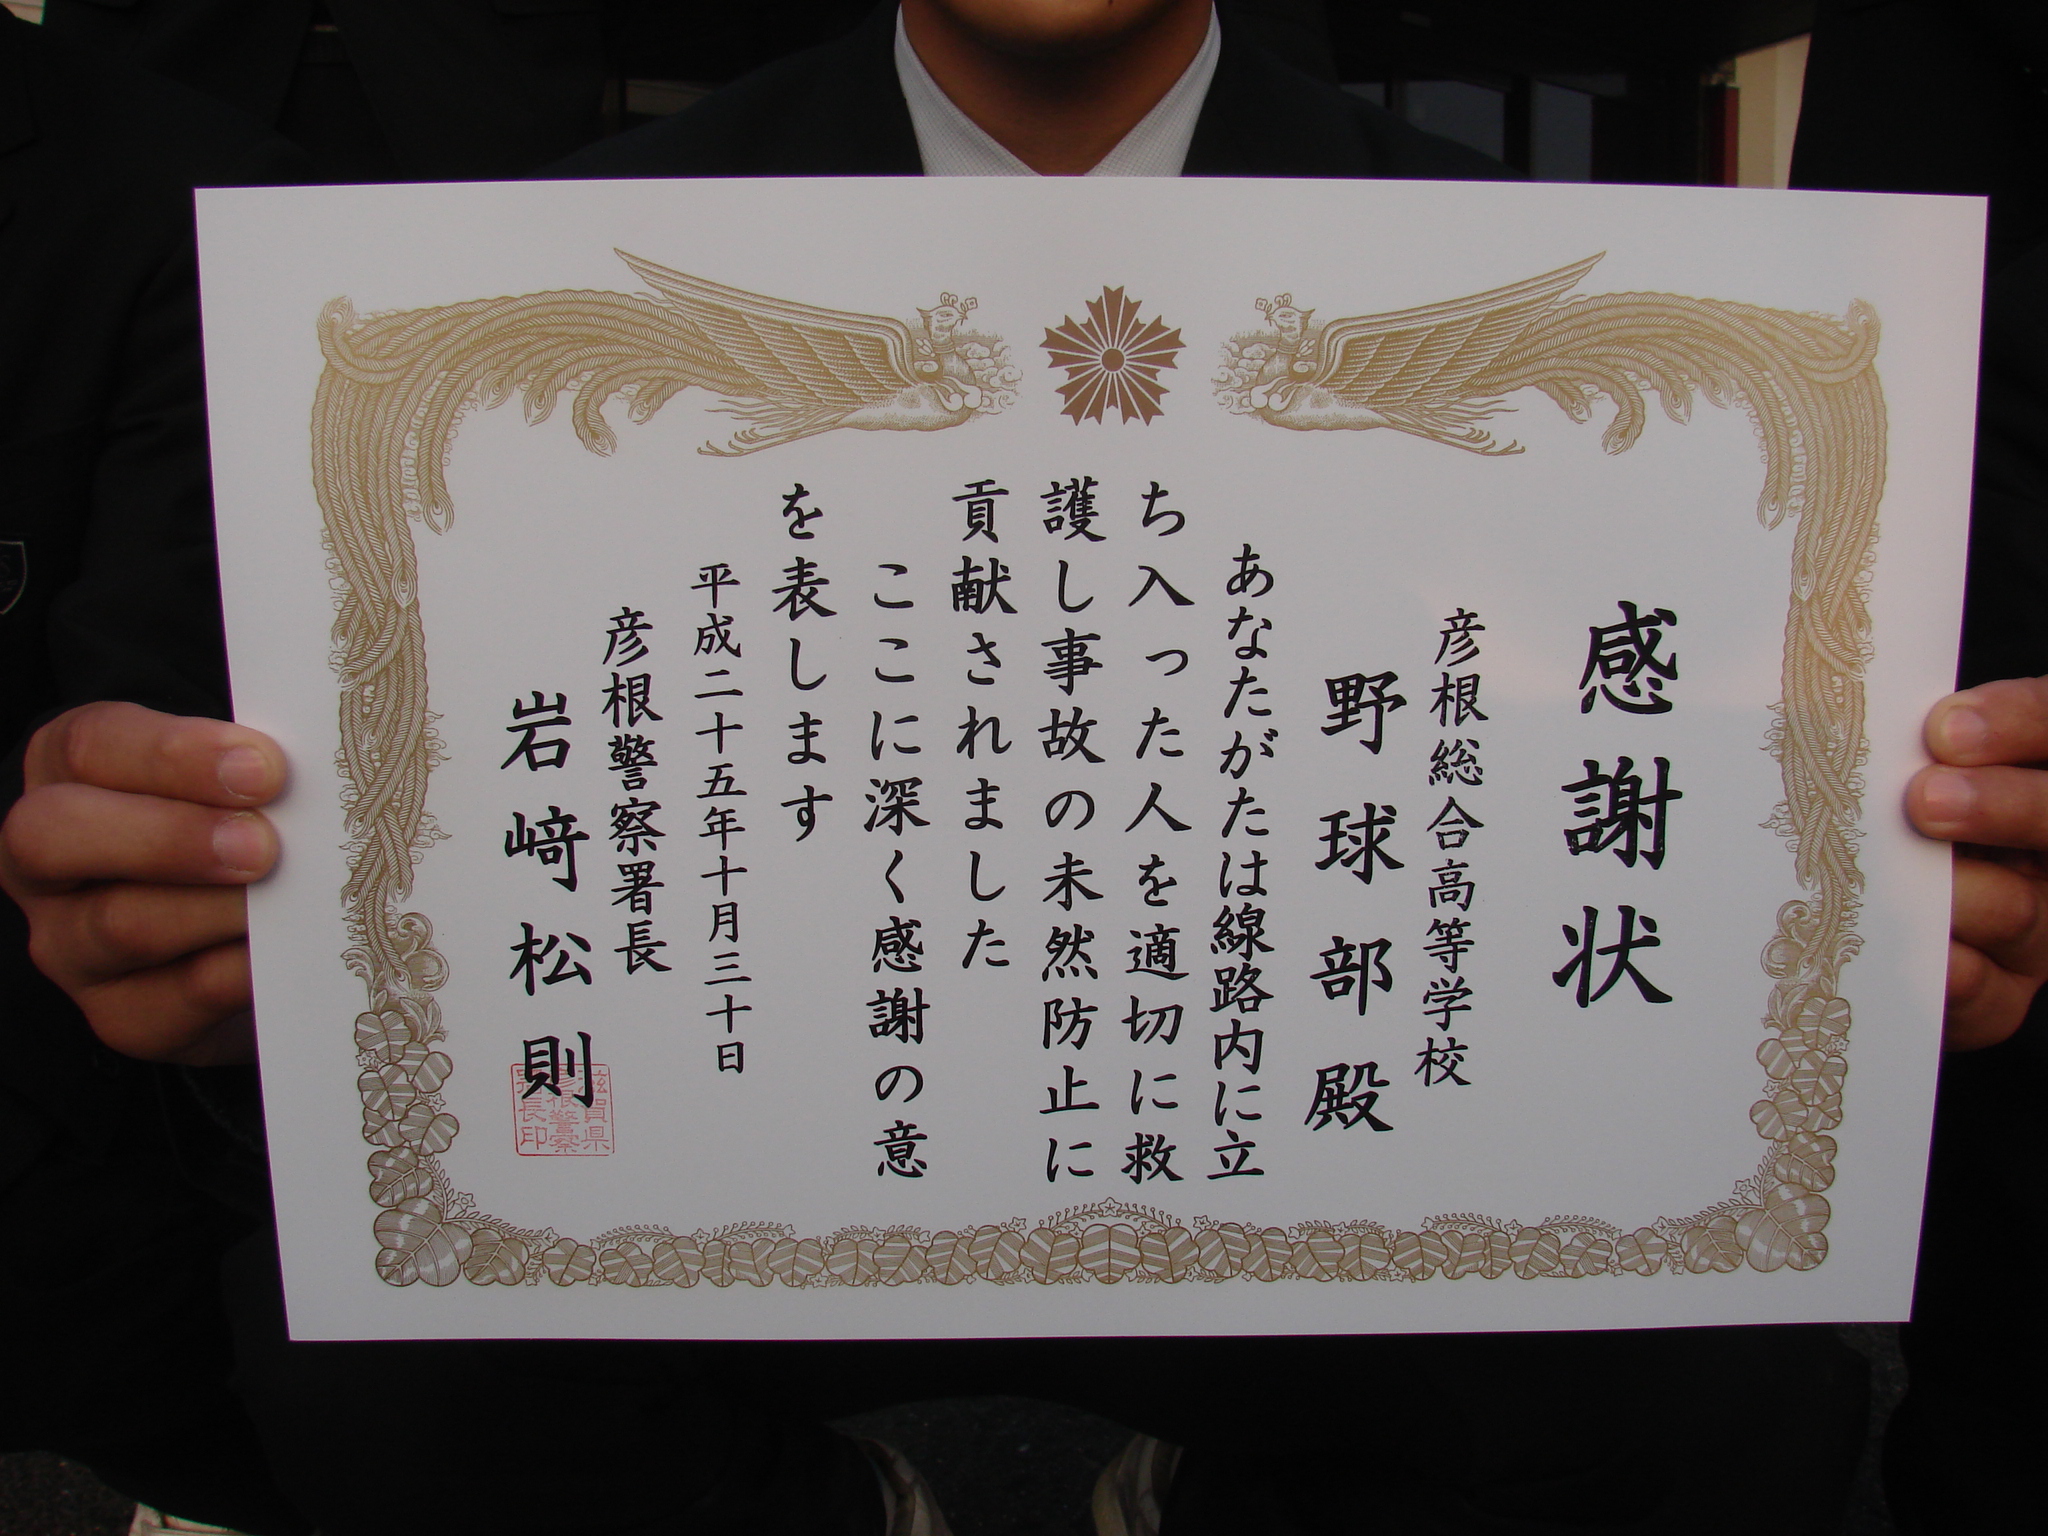 感謝状
彦根総合高等学校
野球部殿
あなたがたは線路内に立
ち入った人を適切に救
護し事故の未然防止に
貢献されました
ここに深く感謝の意
を表します
平成二十五年十月三十日
彦根警察署長
岩﨑松則
滋賀県
彦根警察
署長印